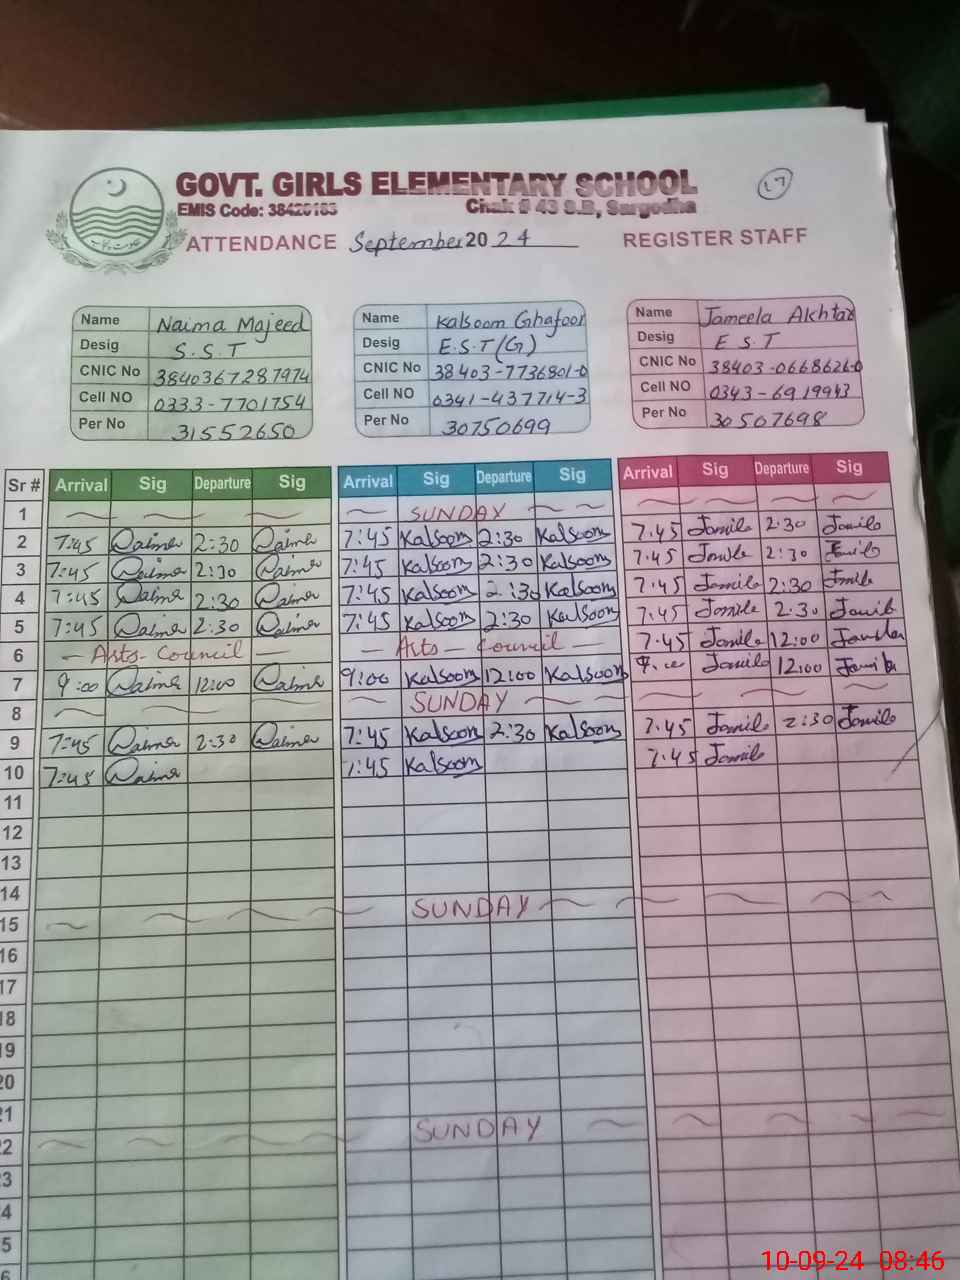 GOVT. GIRLS ELEMENTARY SCHOOL
17
EMIS Code: 38420183 Chak # 43 S.B, Sargodha
ATTENDANCE September 2024 REGISTER STAFF
Name Naima Majeed Name Kalsoom Ghafoor Name Jameela Akhtar
Desig S.S.T Desig E.S.T(G) Desig E S.T
CNIC No 3840367287974 CNIC No 38403-7736801-0 CNIC No 38403-0668626-0
Cell NO 0333-7701754 Cell NO 0341-437714-3 Cell NO 0343-6919943
Per No 31552650 Per No 30750699 Per No 30507698
Sr # Arrival Sig Departure Sig Arrival Sig Departure Sig Arrival Sig Departure Sig
1 SUNDAY
2 7:45 Naima 2:30 Naima 7:45 Kalsoom 2:30 Kalsoom 7.45 Jamila 2:30 Jamila
3 7:45 Naima 2:30 Naima 7:45 Kalsoom 2:30 Kalsoom 7:45 Jamila 2:30 Jamila
4 7:45 Naima 2:30 Naima 7:45 Kalsoom 2:30 Kalsoom 7:45 Jamila 2:30 Jamila
5 7:45 Naima 2:30 Naima 7:45 Kalsoom 2:30 Kalsoom 7:45 Jamila 2:30 Jamila
6 — Arts - Council — — Arts — Council — 7:45 Jamila 12:00 Jamila
7 9:00 Naima 12:00 Naima 9:00 Kalsoom 12:00 Kalsoom Jamila 12:00 Jamila
8 SUNDAY
9 7:45 Naima 2:30 Naima 7:45 Kalsoom 2:30 Kalsoom 7:45 Jamila 2:30 Jamila
10 7:45 Naima 7:45 Kalsoom 7:45 Jamila
11
12
13
14
15 SUNDAY
16
17
18
19
20
21
22 SUNDAY
3
4
5
10-09-24 08:46